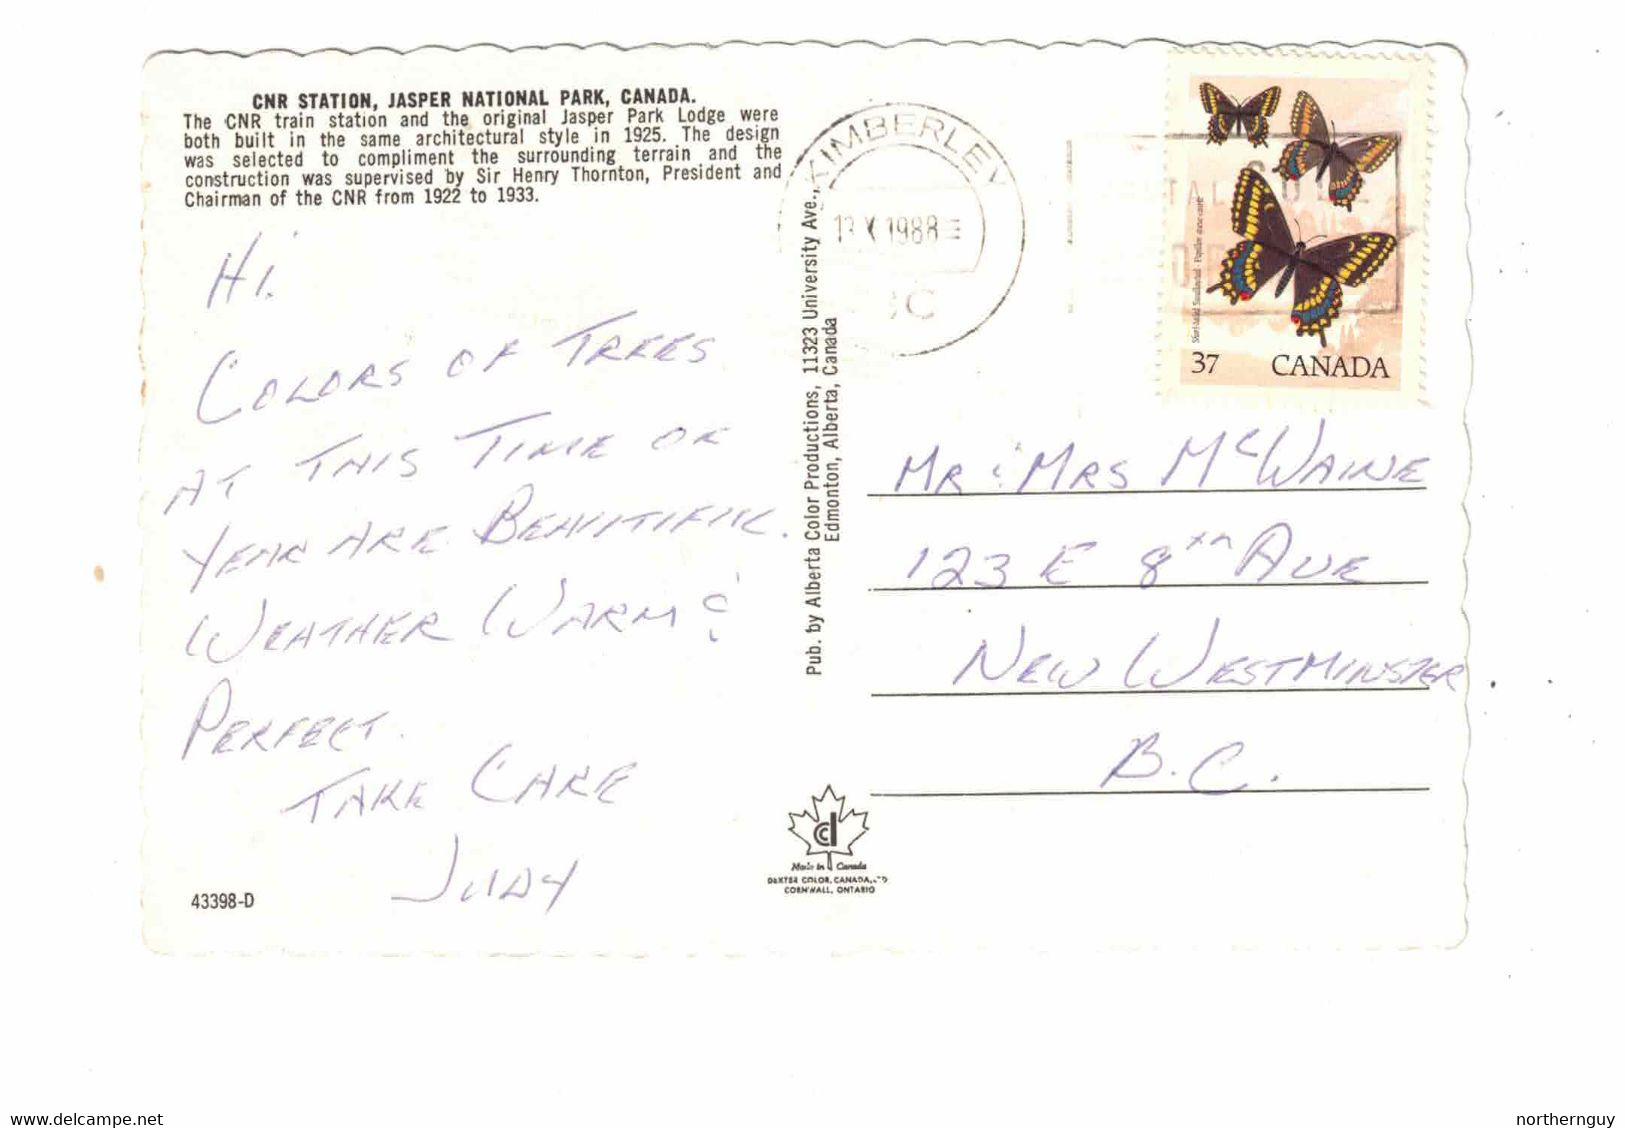 CNR STATION, JASPER NATIONAL PARK, CANADA.
The CNR train station and the original Jasper Park Lodge were
both built in the same architectural style in 1925. The design
was selected to compliment the surrounding terrain and the
construction was supervised by Sir Henry Thornton, President and
Chairman of the CNR from 1922 to 1933.
HI.
COLORS OF TREES
AT THIS TIME OF
YEAR ARE BEAUTIFUL.
WEATHER WARM &
PERFECT.
TAKE CARE
JUDY
43398-D
Pub. by Alberta Color Productions, 11323 University Ave.,
Edmonton, Alberta, Canada
Made in Canada
DEXTER COLOR, CANADA, LTD
CORNWALL, ONTARIO
KIMBERLEY
13 X 1988
BC
POSTAL CODE
Short-tailed Swallowtail · Papillon queue-courte
37 CANADA
MR & MRS McWAINE
123 E 8TH AVE
NEW WESTMINSTER
B.C.
delcampe.net
northernguy